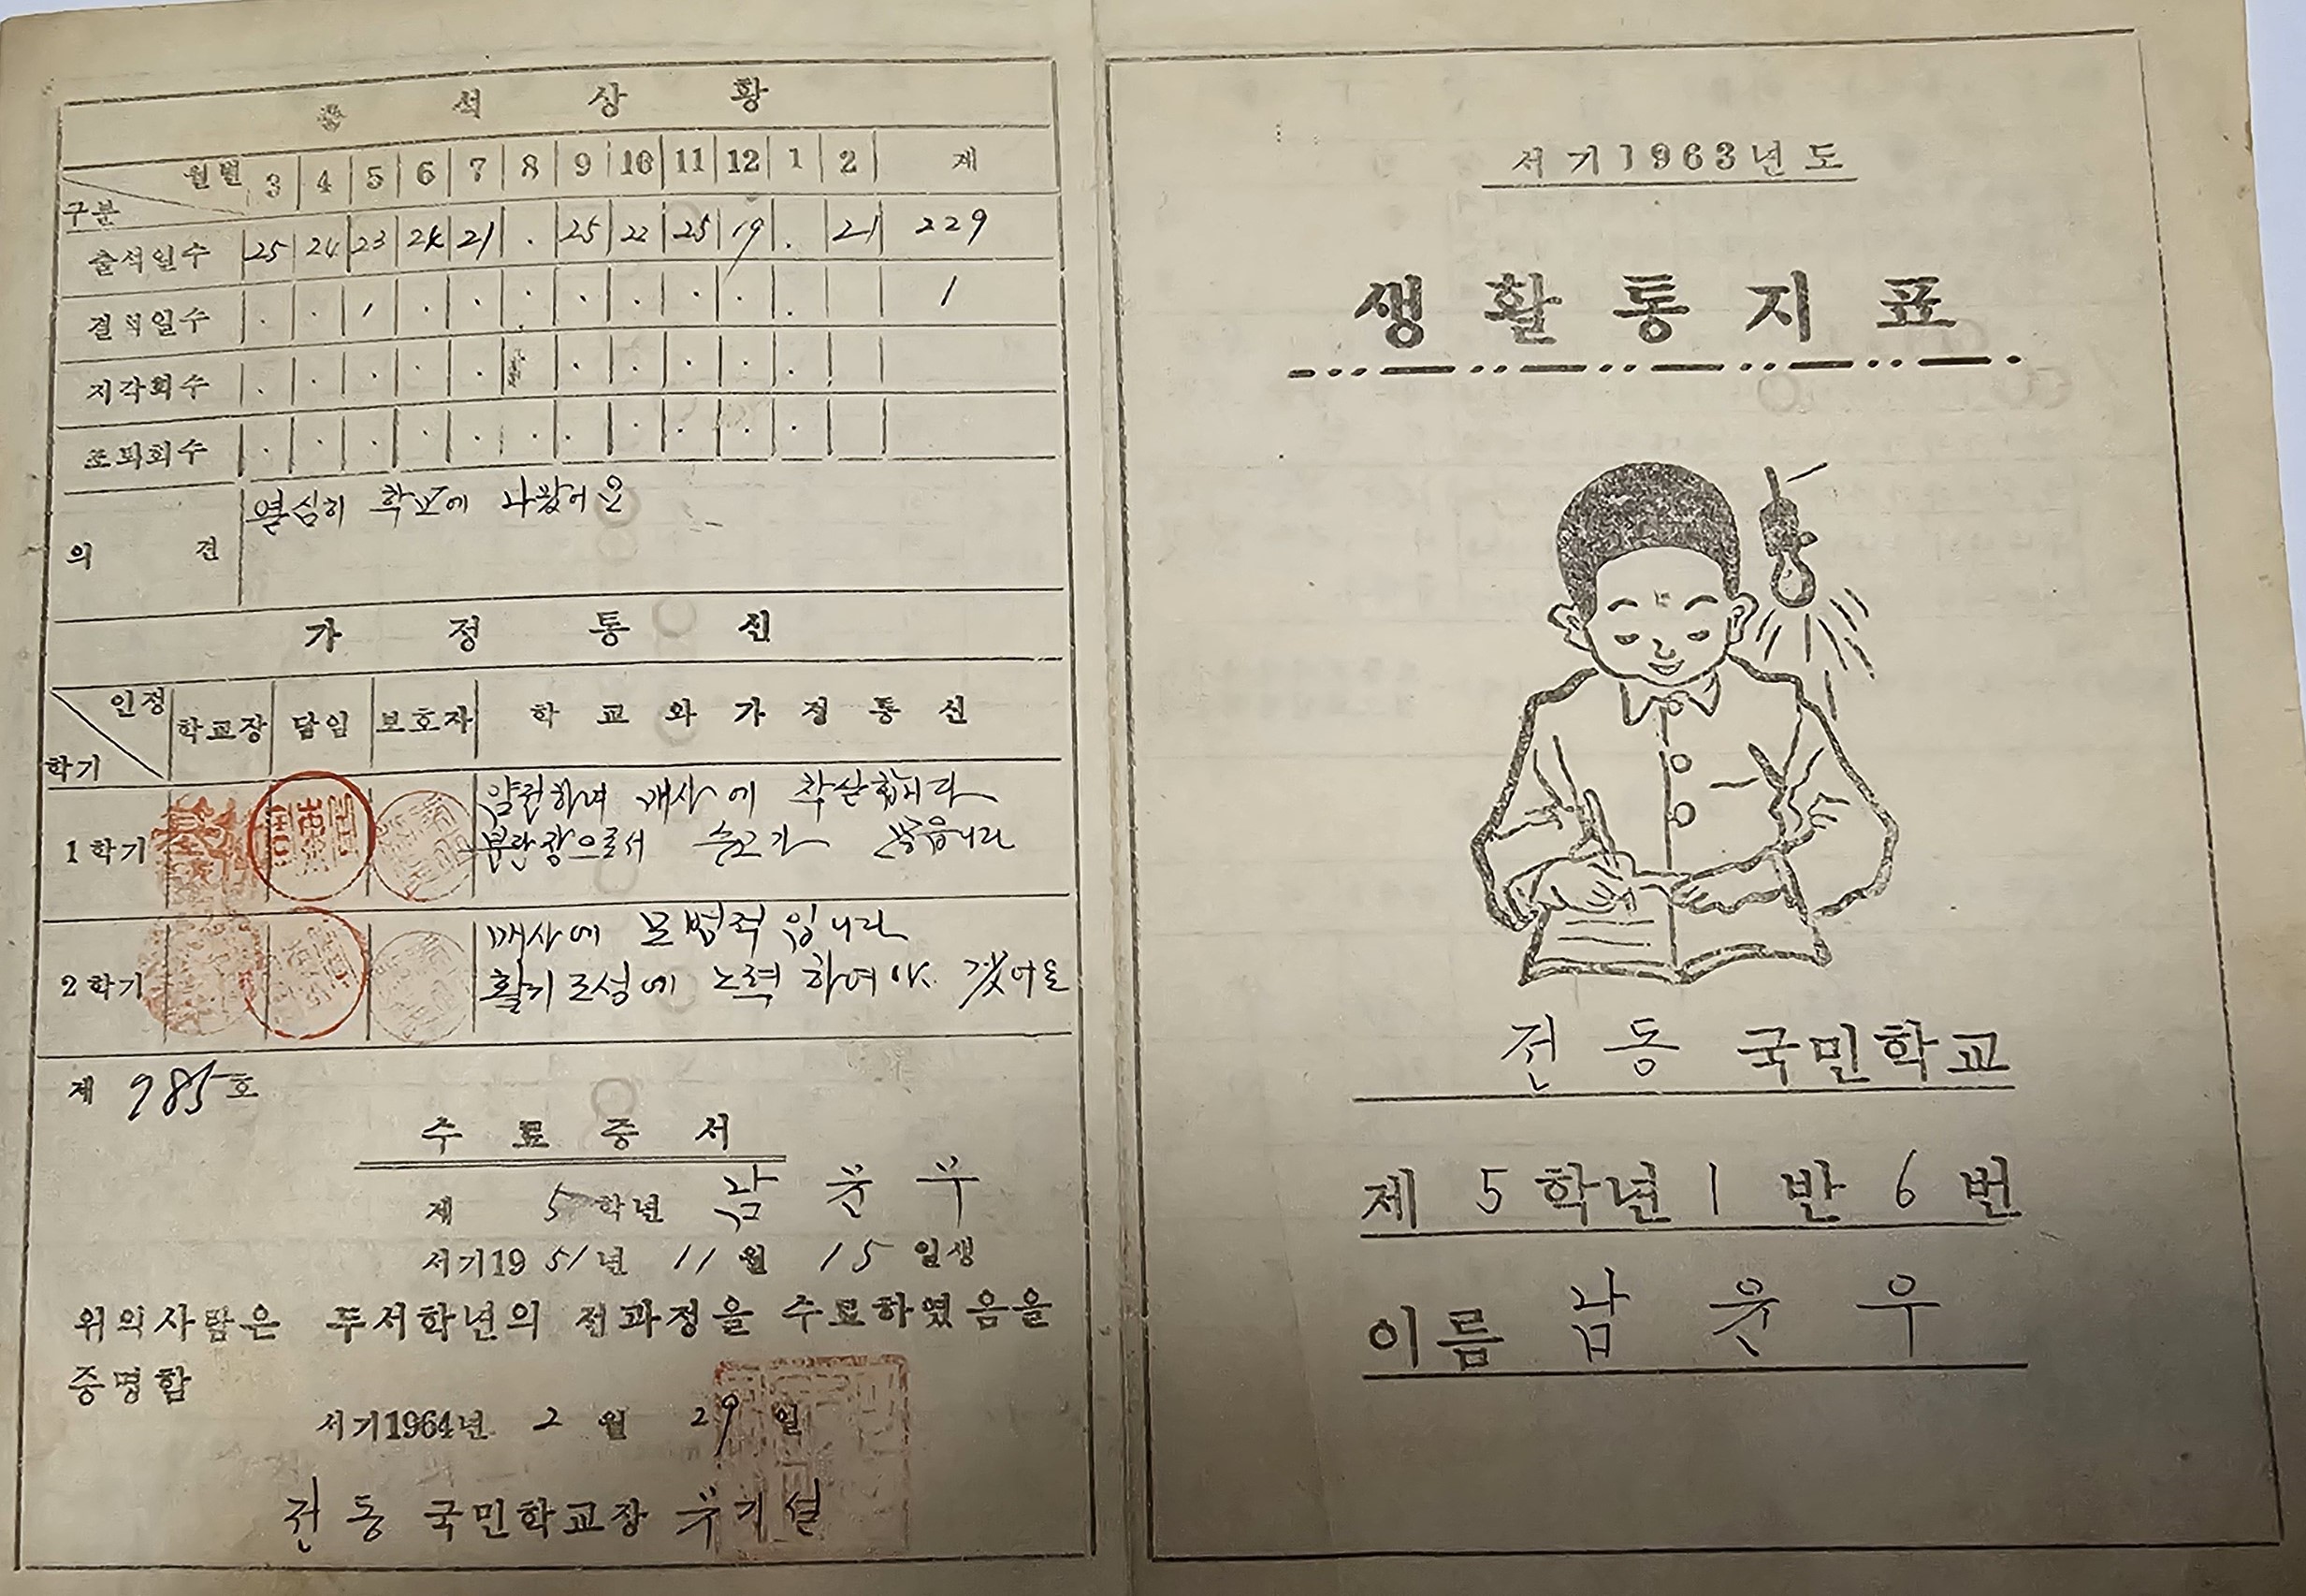 출 석 상 황
월별 3 4 5 6 7 8 9 10 11 12 1 2 계
구분
출석일수 25 24 23 24 21 . 25 22 25 19 . 21 229
결석일수 . . 1 . . . . . . . . 1
지각회수 . . . . . . . . . .
조퇴회수 . . . . . . . . . . .
의 견 열심히 학교에 나왔어요
가 정 통 신
인정 학교장 담임 보호자 학 교 와 가 정 통 신
학기
1학기 얌전하며 매사에 착실합니다
분단장으로서 수고가 많습니다
2학기 매사에 모범적입니다
활기조성에 노력하여야 겠어요
제 985 호
수 료 증 서
제 5 학년 남 윤 우
서기19 51년 11 월 15 일생
위의사람은 두서학년의 전과정을 수료하였음을
증명함
서기1964년 2 월 29 일
전 동 국민학교장 우기설
서기1963년도
생 활 통 지 표
전 동 국민학교
제 5 학년 1 반 6 번
이름 남 윤 우